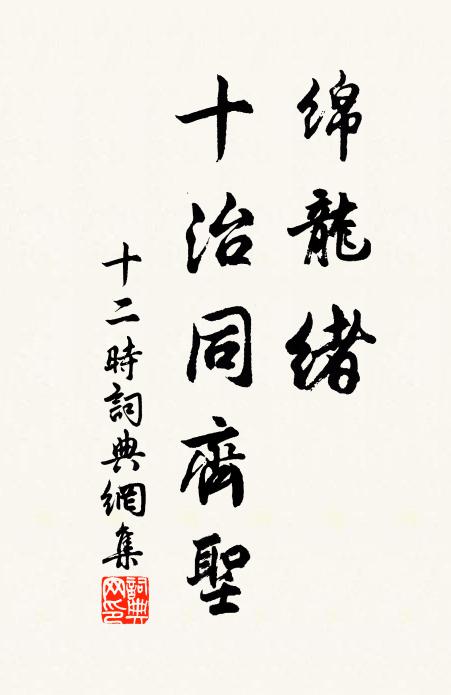 綿龍緒
十治同齊聖
十二時詞典網集
詞典網印